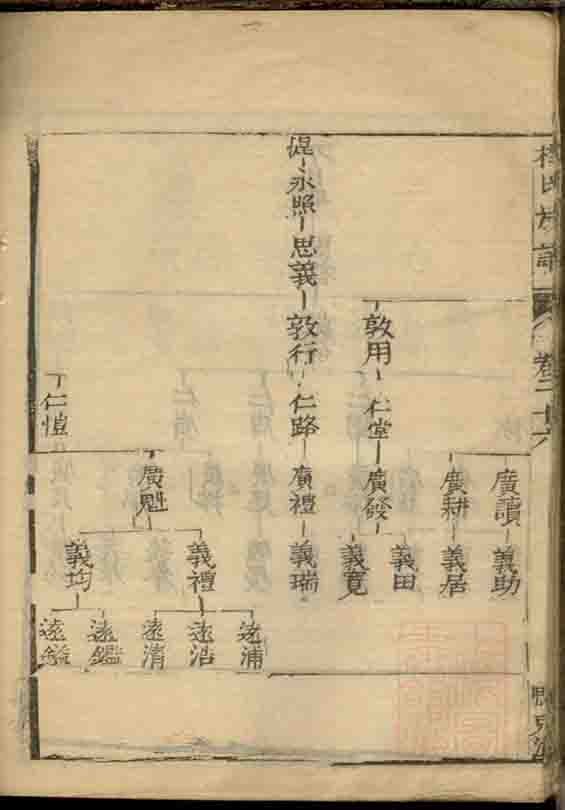 氏族譜
卷二十六
湜
永照
思義
敦用
敦行
仁堂
仁路
仁愷
廣讀
廣耕
廣發
廣禮
廣魁
義助
義居
義田
義寛
義瑞
義禮
義均
遠浦
遠浩
遠清
遠鑑
遠鎰